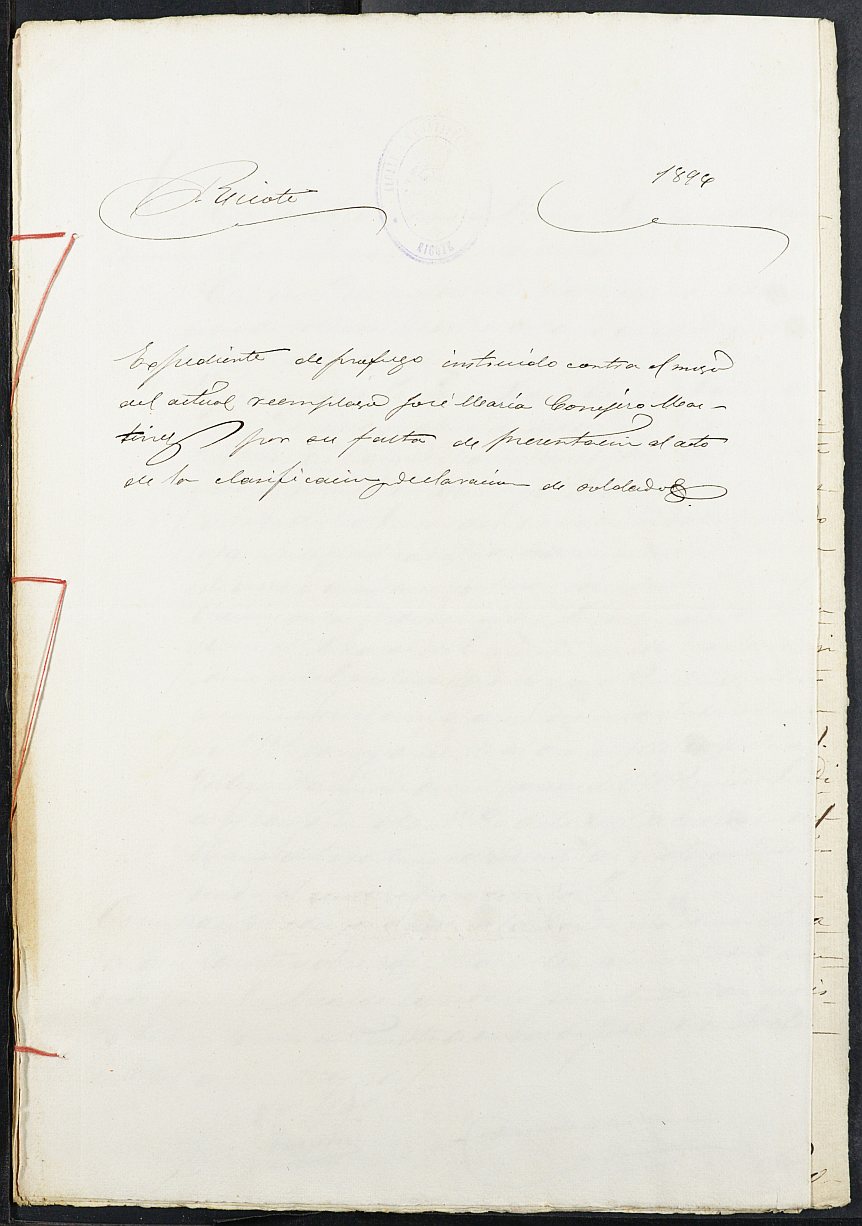 Ricote
1894
Expediente de profugo instruido contra el mozo
del actual reemplazo José María Conejero Mar-
tinez por su falta de presentacion al acto
de la clasificacion y declaracion de soldados